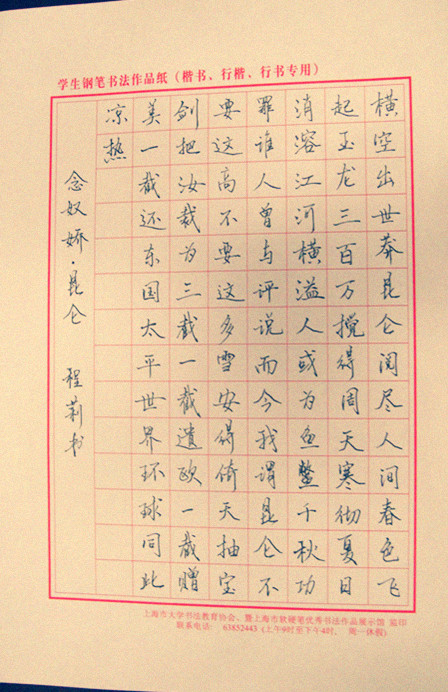 学生钢笔书法作品纸（楷书、行楷、行书专用）
横空出世莽昆仑阅尽人间春色飞
起玉龙三百万搅得周天寒彻夏日
消溶江河横溢人或为鱼鳖千秋功
罪谁人曾与评说而今我谓昆仑不
要这高不要这多雪安得倚天抽宝
剑把汝裁为三截一截遗欧一截赠
美一截还东国太平世界环球同此
凉热
念奴娇·昆仑 程莉书
上海市大学书法教育协会、暨上海市软硬笔优秀书法作品展示馆 监印
联系电话: 63852443 (上午9时至下午4时, 周一休假)